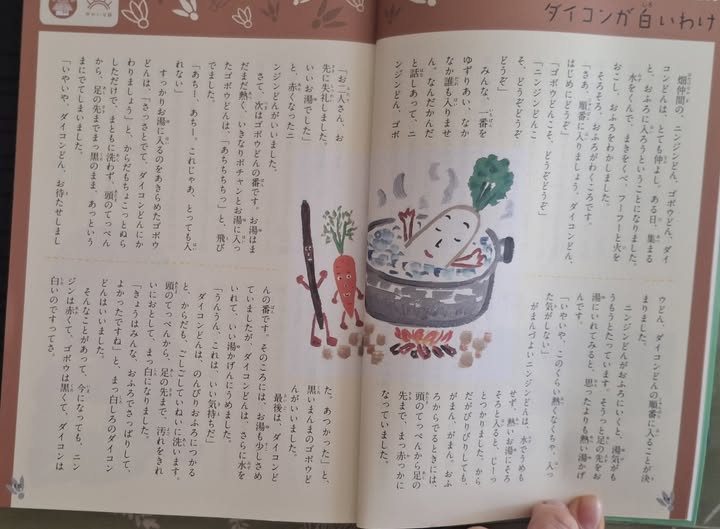 ダイコンが白いわけ
畑仲間の、ニンジンどん、ゴボウどん、ダイ
コンどんは、とても仲よし。ある日、集まる
と、おふろに入ろうということになりました。
水をくんで、まきをくべ、フーフーと火を
おこし、おふろをわかしました。
そろそろ、おふろがわくころです。
「さあ、順番に入りましょう、ダイコンどん、
はじめにどうぞ」
「ゴボウどんこそ、どうぞどうぞ」
「ニンジンどんこそ、どうぞどうぞ」
みんな、一番を
ゆずりあい、なか
なか誰も入りませ
ん。なんだかんだ
と話しあって、ニ
ンジンどん、ゴボ
ウどん、ダイコンどんの順番に入ることが決
まりました。
ニンジンどんがおふろにいくと、湯気がも
うもうとたっています。そうっと足の先をお
湯にいれてみると、思ったよりも熱い湯かげ
んです。
「いやいや、このくらい熱くなくちゃ、入っ
た気がしない」
がまんづよいニンジンどんは、水でうめも
せず、熱いお湯にそろ
そろと入ると、じーっ
とつかりました。から
だがぴりぴりしても、
がまん、がまん。おふ
ろからでるときには、
頭のてっぺんから足の
先まで、まっ赤っかに
なっていました。
「お二人さん、お
先に失礼しました。
いいお湯でした」
と、赤くなったニ
ンジンどんがいいました。
さて、次はゴボウどんの番です。お湯はま
だまだ熱く、いきなりボチャンとお湯に入っ
たゴボウどんは、「あちちちちっ」と、飛び
でました。
「あちー、あちー。これじゃあ、とっても入
れない」
すっかりお湯に入るのをあきらめたゴボウ
どんは、「さっさとでて、ダイコンどんにか
わりましょう」と、からだもちょこっとぬら
しただけで、まともに洗わず、頭のてっぺん
から、足の先までまっ黒のまま、あっという
まにでてしまいました。
「いやいや、ダイコンどん、お待たせしまし
た、あつかった」と、
黒いまんまのゴボウど
んがいいました。
最後は、ダイコンど
んの番です。そのころには、お湯も少しさめ
ていましたが、ダイコンどんは、さらに水を
いれて、いい湯かげんにうめました。
「うんうん、これは、いい気持ちだ」
ダイコンどんは、のんびりおふろにつかる
と、からだも、ごしごしていねいに洗います。
頭のてっぺんから、足の先まで、汚れをきれ
いにおとして、まっ白になりました。
「きょうはみんな、おふろでさっぱりして、
よかったですね」と、まっ白しろのダイコン
どんはいいました。
そんなことがあって、今になっても、ニン
ジンは赤くて、ゴボウは黒くて、ダイコンは
白いのですってさ。